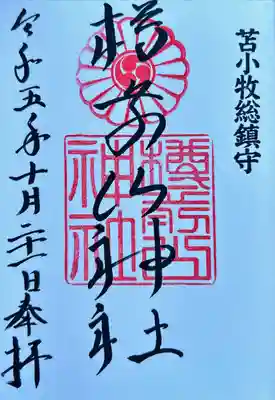 苫小牧総鎮守
樽前山神社
樽前山
神社
令和五年十月二十一日奉拝